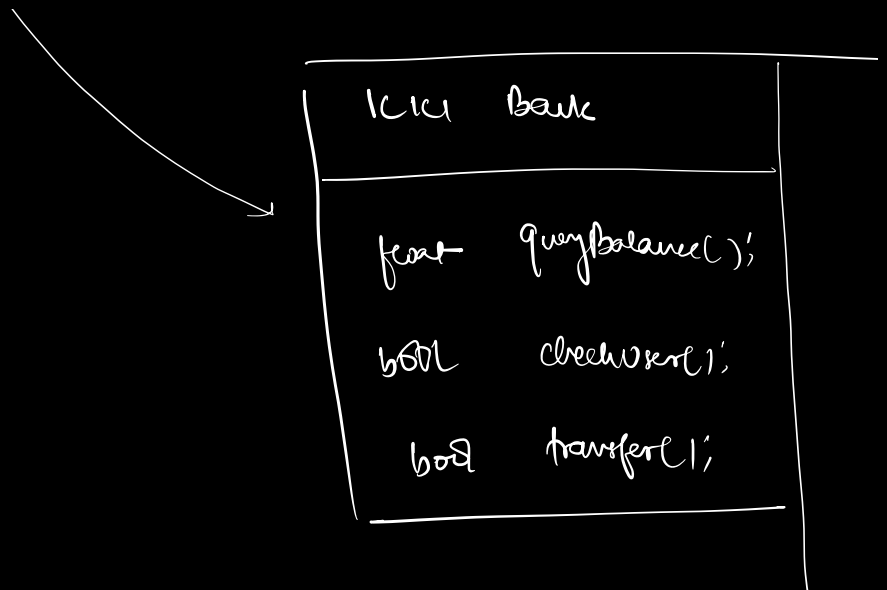 ICICI Bank
float queryBalance();
bool checkUser();
bool transfer();